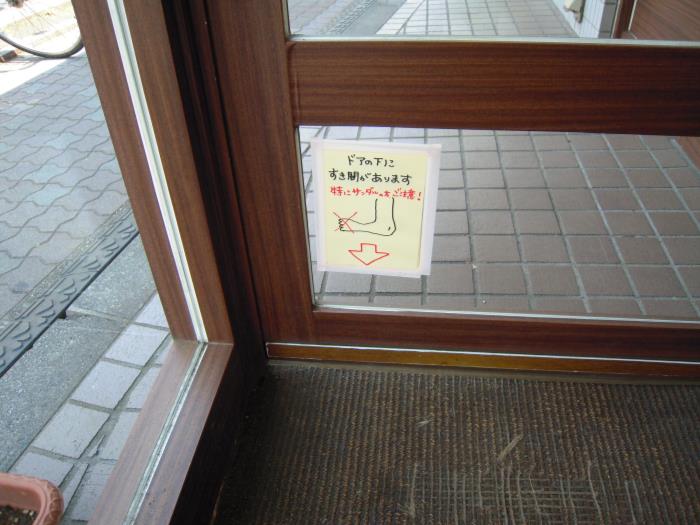 ドアの下に
すき間があります
特にサンダルの方ご注意!